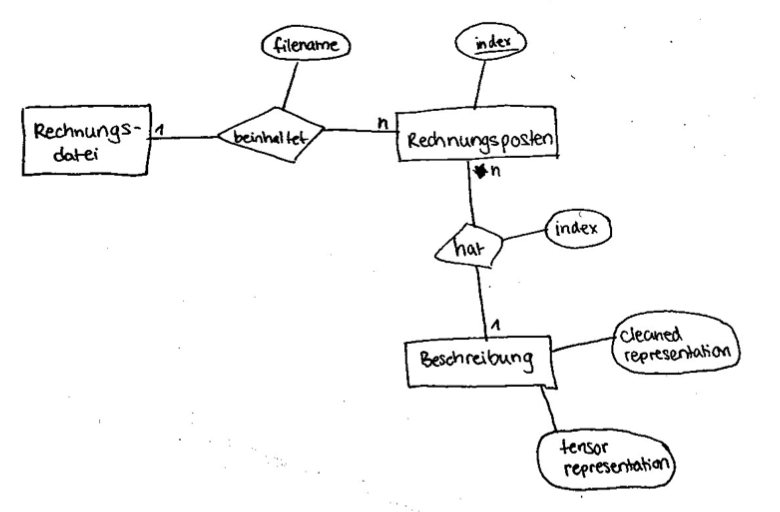 filename
index
Rechnungs-
datei
1
beinhaltet
n
Rechnungsposten
n
hat
index
1
Beschreibung
cleaned
representation
tensor
representation